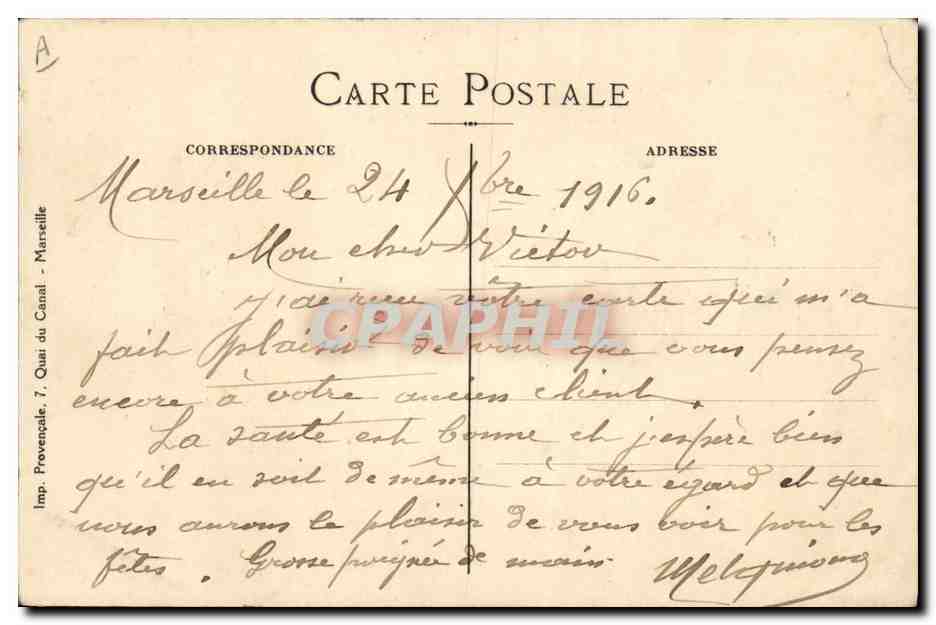 A
CARTE POSTALE
CORRESPONDANCE
ADRESSE
Marseille le 24 Xbre 1916.
Mon cher Victor
J'ai reçu vôtre carte qui m'a
fait plaisir de voir que vous pensez
encore à votre ancien client.
La santé est bonne et j'espère bien
qu'il en soit de même à vôtre égard et que
nous aurons le plaisir de vous voir pour les
fêtes. Grosse poignée de main
Imp. Provençale, 7, Quai du Canal - Marseille
CPAPHIL